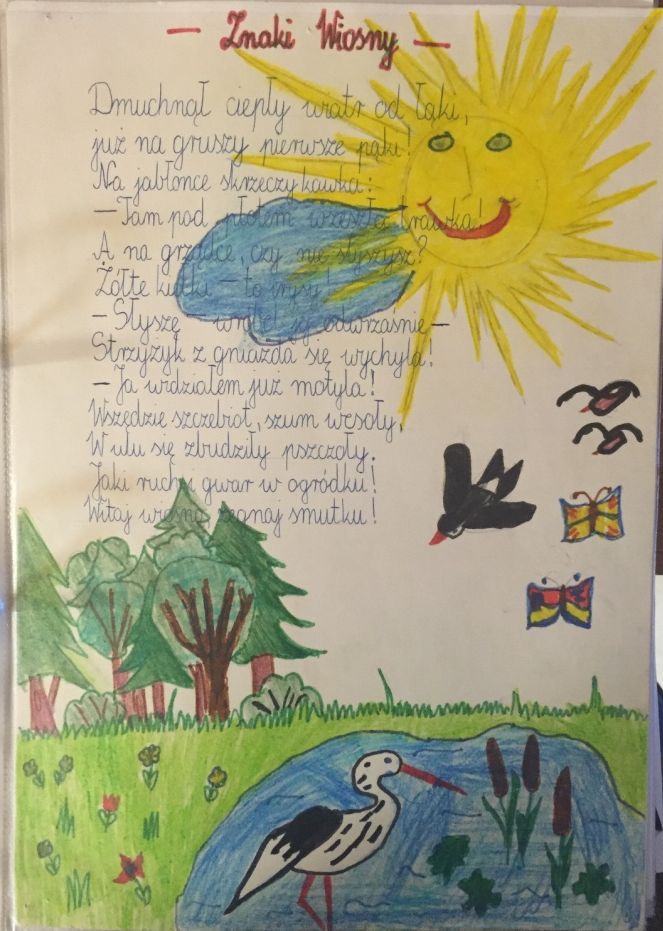 — Znaki Wiosny —
Dmuchnął ciepły wiatr od łąki,
już na gruszy pierwsze pąki!
Na jabłonce skrzeczy kawka:
— Tam pod płotem wzeszła trawka!
A na grządce, czy nie słyszysz?
Żółte kulki — to irysy!
— Słyszę — wróbel jej odwrzaśnie —
Strzyżyk z gniazda się wychyla!
— Ja widziałem już motyla!
Wszędzie szczebiot, szum wesoły,
W ulu się zbudziły pszczoły.
Jaki ruch i gwar w ogródku!
Witaj wiosno, żegnaj smutku!